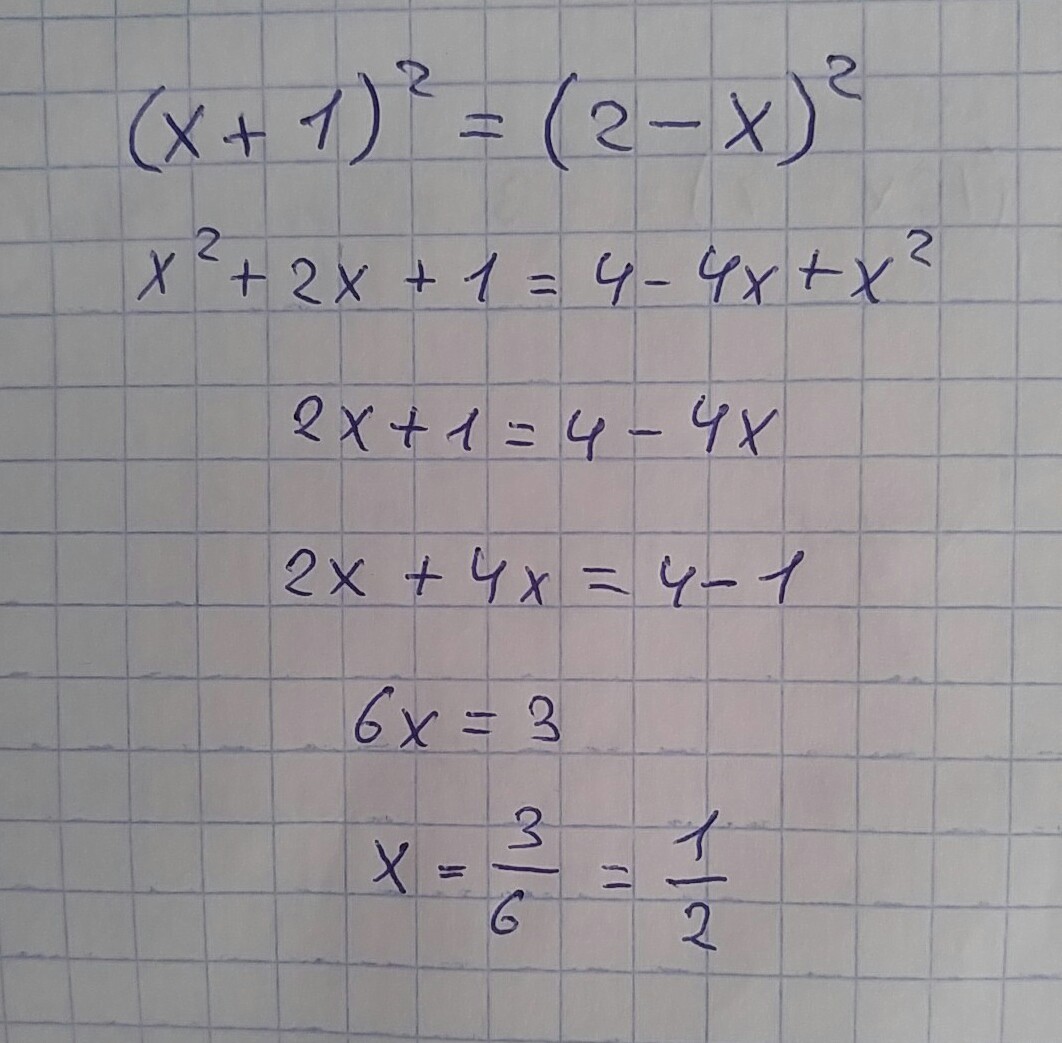 (x + 1)² = (2 - x)²
x² + 2x + 1 = 4 - 4x + x²
2x + 1 = 4 - 4x
2x + 4x = 4 - 1
6x = 3
x = 3/6 = 1/2